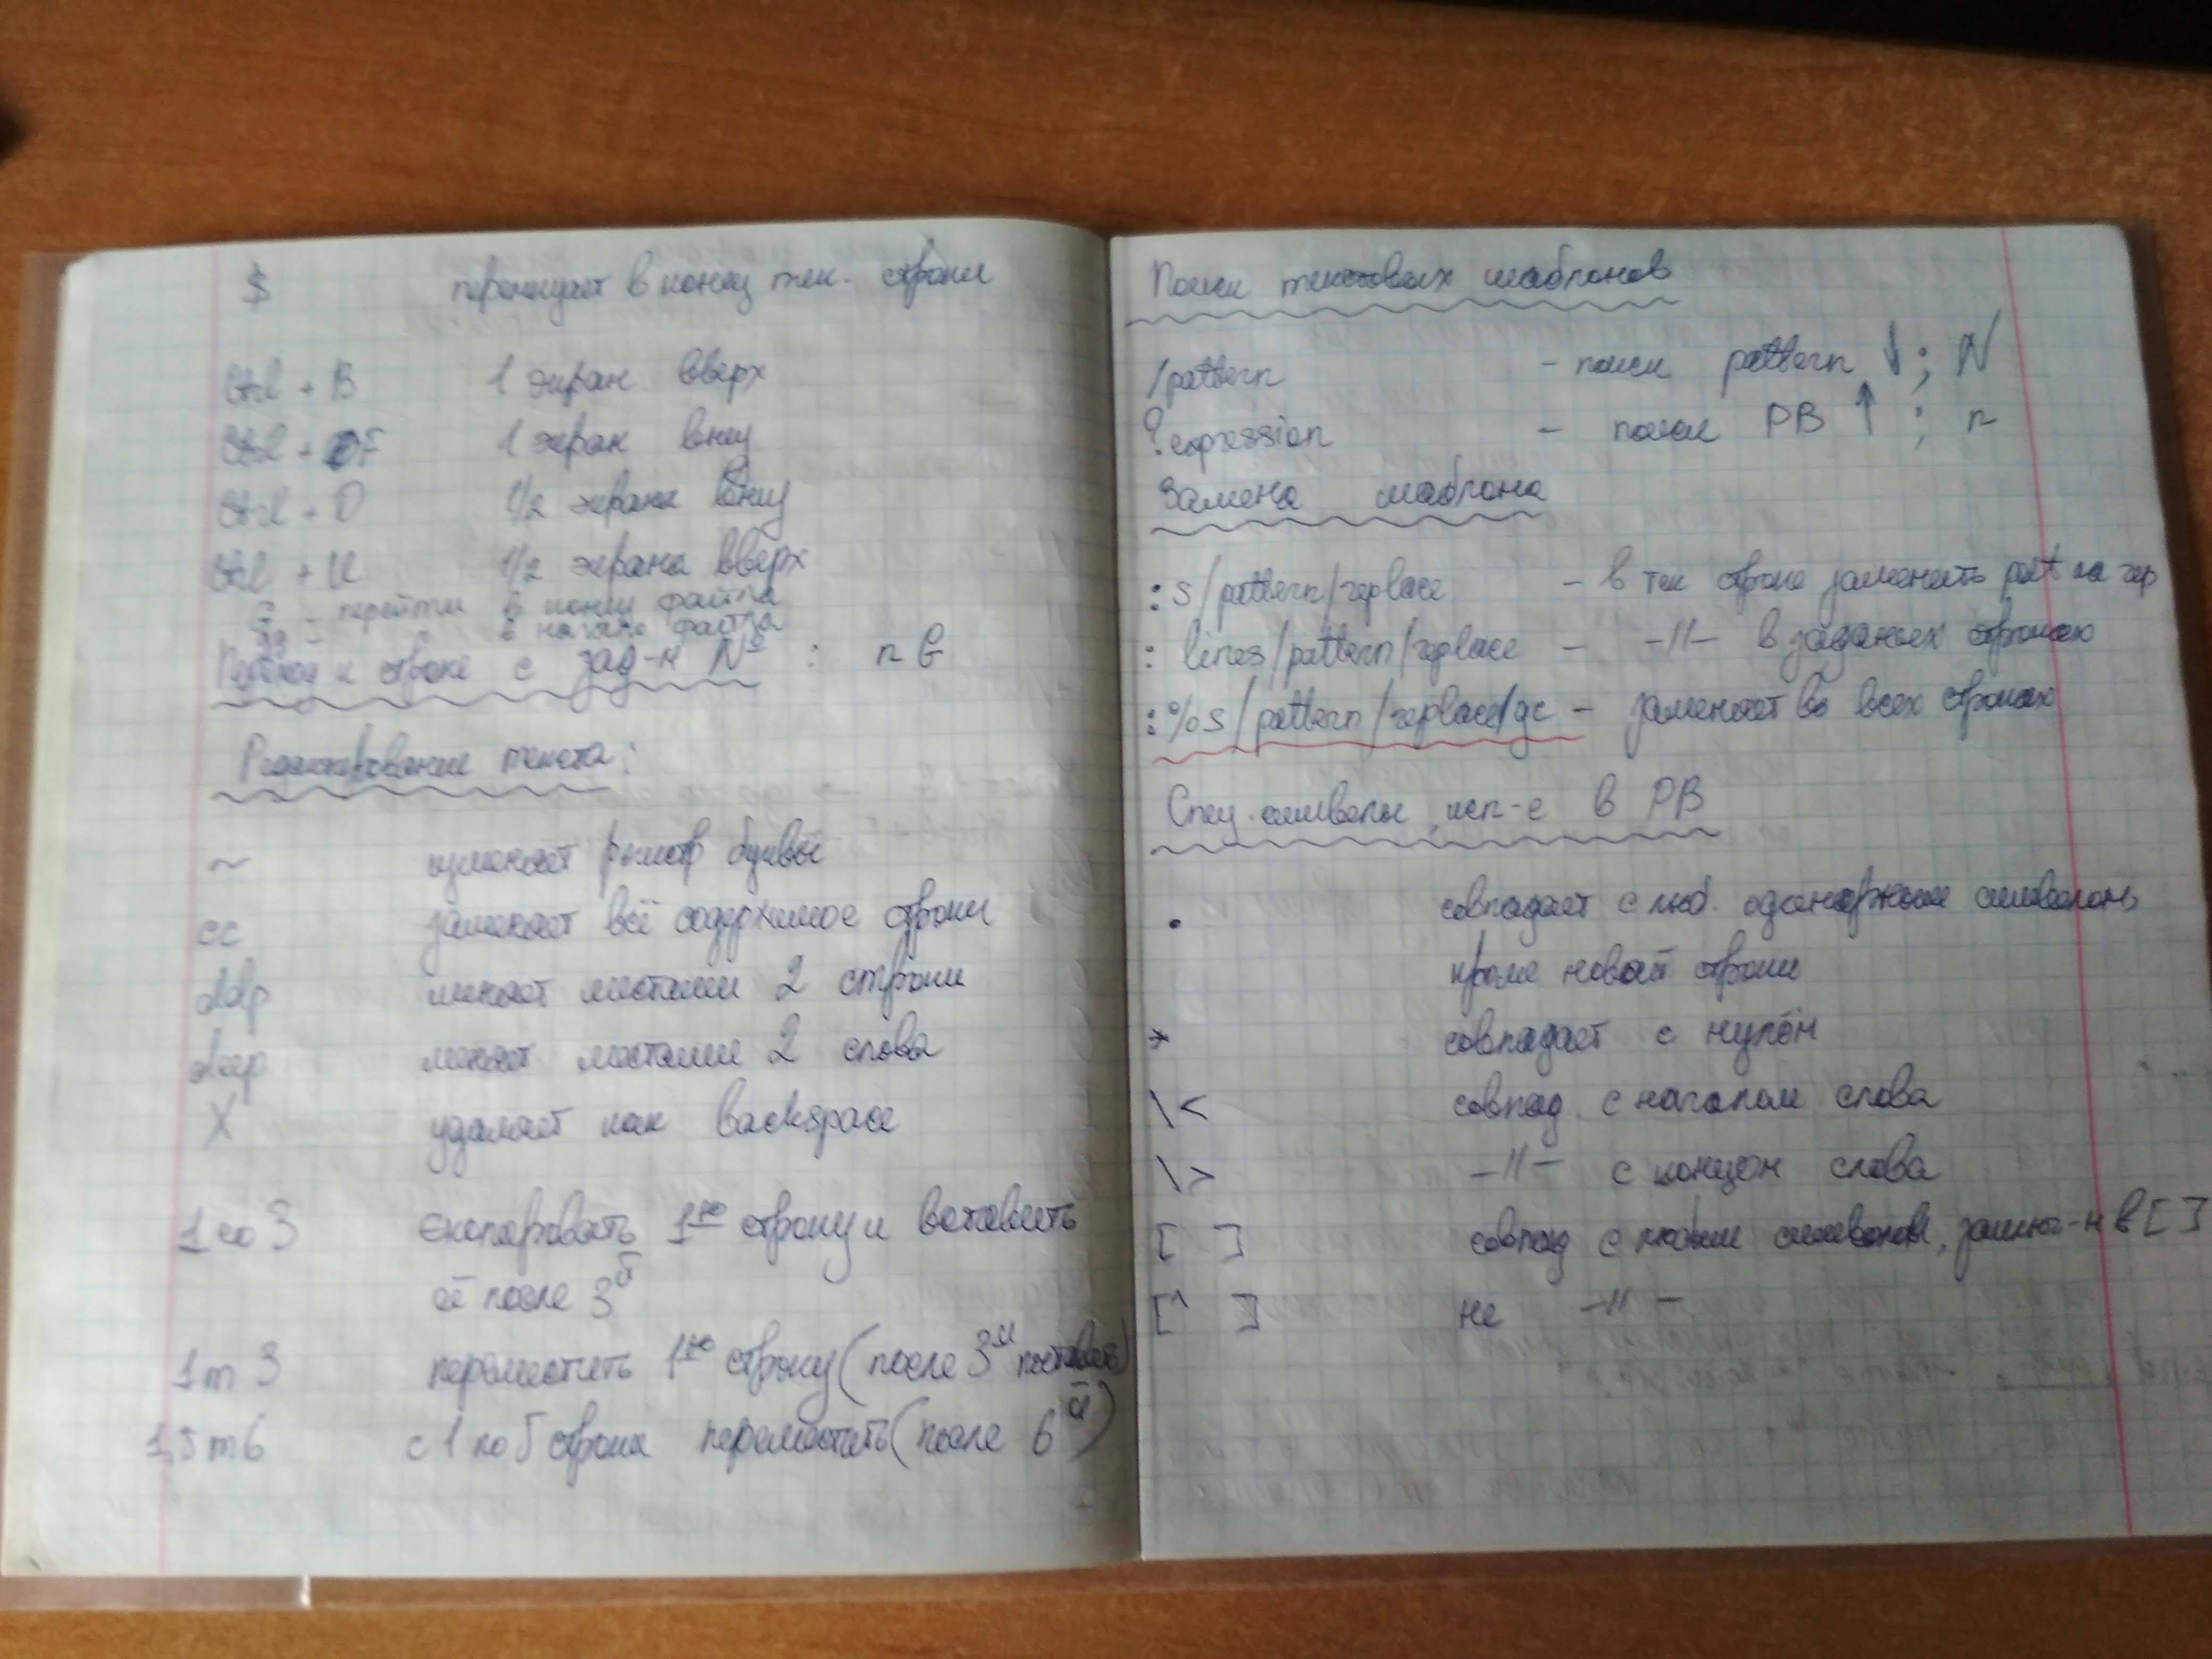 $ перемещает в конец тек. строки
Ctrl + B 1 экран вверх
Ctrl + F 1 экран вниз
Ctrl + D 1/2 экрана вниз
Ctrl + U 1/2 экрана вверх
G - перейти в конец файла
gg - в начало файла
Переход к строке с зад-м № : n G
Редактирование текста:
~ изменяет регистр буквы
cc заменяет всё содержимое строки
ddp меняет местами 2 строки
меняет местами 2 слова
X удаляет как backspace
1 co 3 скопировать 1ую строку и вставить
её после 3й
1 m 3 переместить 1ую строку (после 3й поставить)
1,5 m 6 с 1 по 5 строки переместить (после 6й)
Поиск текстовых шаблонов
/pattern - поиск pattern ↓ ; N
?expression - поиск РВ ↑ ; n
Замена шаблона
:s/pattern/replace - в тек строке заменить patt на rep
: lines/pattern/replace - -//- в заданных строках
:%s/pattern/replace/gc - заменяет во всех строках
Спец. символы, исп-е в РВ
. совпадает с люб. одинарным символом,
кроме новой строки
* совпадает с нулём
\< совпад. с началом слова
\> -//- с концом слова
[ ] совпад с любым символом, заключ-м в [ ]
[^ ] не -//-